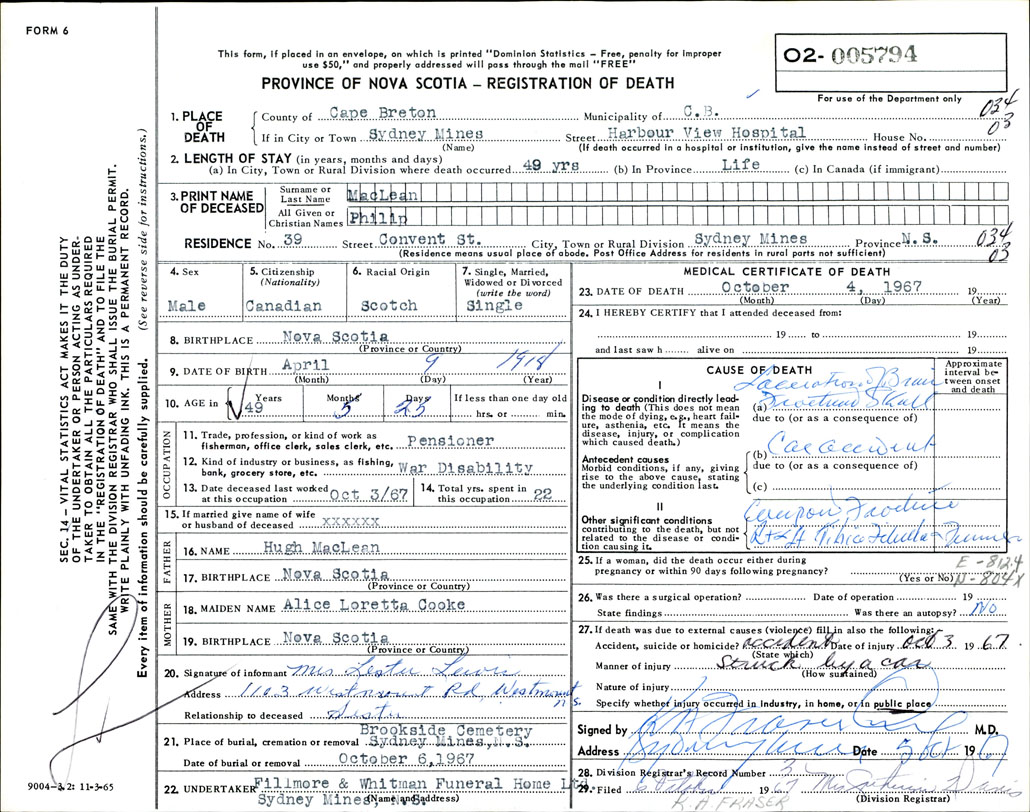 FORM 6
This form, if placed in an envelope, on which is printed "Dominion Statistics – Free, penalty for improper
use $50," and properly addressed will pass through the mail "FREE"
PROVINCE OF NOVA SCOTIA – REGISTRATION OF DEATH
O2- 005794
For use of the Department only
1. PLACE OF DEATH
County of Cape Breton Municipality of C.B. 034
If in City or Town Sydney Mines Street Harbour View Hospital House No. 03
(Name) (If death occurred in a hospital or institution, give the name instead of street and number)
2. LENGTH OF STAY (in years, months and days)
(a) In City, Town or Rural Division where death occurred 49 yrs (b) In Province Life (c) In Canada (if immigrant)
3. PRINT NAME OF DECEASED
Surname or Last Name MacLean
All Given or Christian Names Philip
RESIDENCE No. 39 Street Convent St. City, Town or Rural Division Sydney Mines Province N.S. 034
(Residence means usual place of abode. Post Office Address for residents in rural parts not sufficient) 03
4. Sex
Male
5. Citizenship
(Nationality)
Canadian
6. Racial Origin
Scotch
7. Single, Married,
Widowed or Divorced
(write the word)
Single
8. BIRTHPLACE Nova Scotia
(Province or Country)
9. DATE OF BIRTH April 9 1918
(Month) (Day) (Year)
10. AGE in Years 49 Months 5 Days 25 If less than one day old
hrs. or min.
OCCUPATION
11. Trade, profession, or kind of work as
fisherman, office clerk, sales clerk, etc. Pensioner
12. Kind of industry or business, as fishing,
bank, grocery store, etc. War Disability
13. Date deceased last worked
at this occupation Oct 3/67
14. Total yrs. spent in
this occupation 22
15. If married give name of wife
or husband of deceased xxxxxx
FATHER
16. NAME Hugh MacLean
17. BIRTHPLACE Nova Scotia
(Province or Country)
MOTHER
18. MAIDEN NAME Alice Loretta Cooke
19. BIRTHPLACE Nova Scotia
(Province or Country)
20. Signature of informant Mrs Lester Lewis
Address 1103 Westmount Rd, Westmount
N.S.
Relationship to deceased Sister
21. Place of burial, cremation or removal Brookside Cemetery
Sydney Mines, N.S.
Date of burial or removal October 6, 1967
22. UNDERTAKER Fillmore & Whitman Funeral Home Ltd
Sydney Mines, N.S.
(Name and address)
MEDICAL CERTIFICATE OF DEATH
23. DATE OF DEATH October 4, 1967 19
(Month) (Day) (Year)
24. I HEREBY CERTIFY that I attended deceased from:
19 to 19
and last saw h alive on 19
CAUSE OF DEATH
Approximate interval between onset and death
I
Disease or condition directly leading to death (This does not mean the mode of dying, e.g., heart failure, asthenia, etc. It means the disease, injury, or complication which caused death.)
Laceration of Brain
(a) Fractured Skull
due to (or as a consequence of)
Antecedent causes
Morbid conditions, if any, giving rise to the above cause, stating the underlying condition last.
(b) Car accident
due to (or as a consequence of)
(c)
II
Other significant conditions
contributing to the death, but not related to the disease or condition causing it.
Compound Fracture
Rt & Lt Tibia Fibula & Femur
25. If a woman, did the death occur either during
pregnancy or within 90 days following pregnancy?
(Yes or No)
E - 812.4
N - 804X
26. Was there a surgical operation? Date of operation 19
State findings Was there an autopsy? No
27. If death was due to external causes (violence) fill in also the following:
Accident, suicide or homicide? accident Date of injury Oct 3 1967.
(State which)
Manner of injury struck by a car
(How sustained)
Nature of injury
Specify whether injury occurred in industry, in home, or in public place
Signed by M.D.
Address Sydney Mines Date 5 Oct 1967
28. Division Registrar's Record Number 3
29. Filed 1967 Mrs Davis
K.A. FRASER (Division Registrar)
SEC. 14 – VITAL STATISTICS ACT MAKES IT THE DUTY
OF THE UNDERTAKER OR PERSON ACTING AS UNDER-
TAKER TO OBTAIN ALL THE PARTICULARS REQUIRED
IN THE "REGISTRATION OF DEATH" AND TO FILE THE
SAME WITH THE DIVISION REGISTRAR WHO SHALL ISSUE THE BURIAL PERMIT.
WRITE PLAINLY WITH UNFADING INK. THIS IS A PERMANENT RECORD.
Every item of information should be carefully supplied. (See reverse side for instructions.)
9004-3.2: 11-3-65